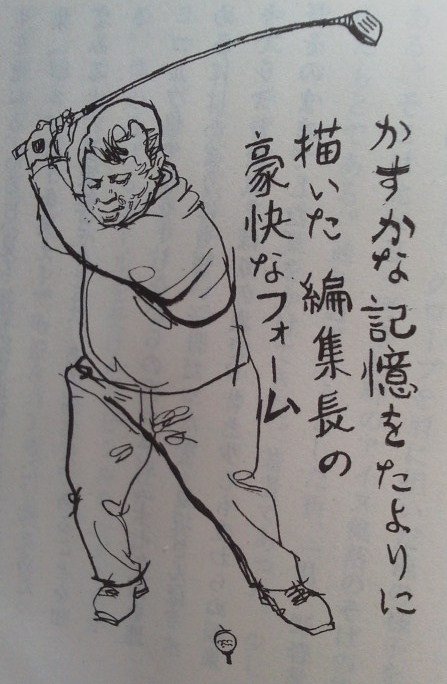 かすかな記憶をたよりに
描いた編集長の
豪快なフォーム